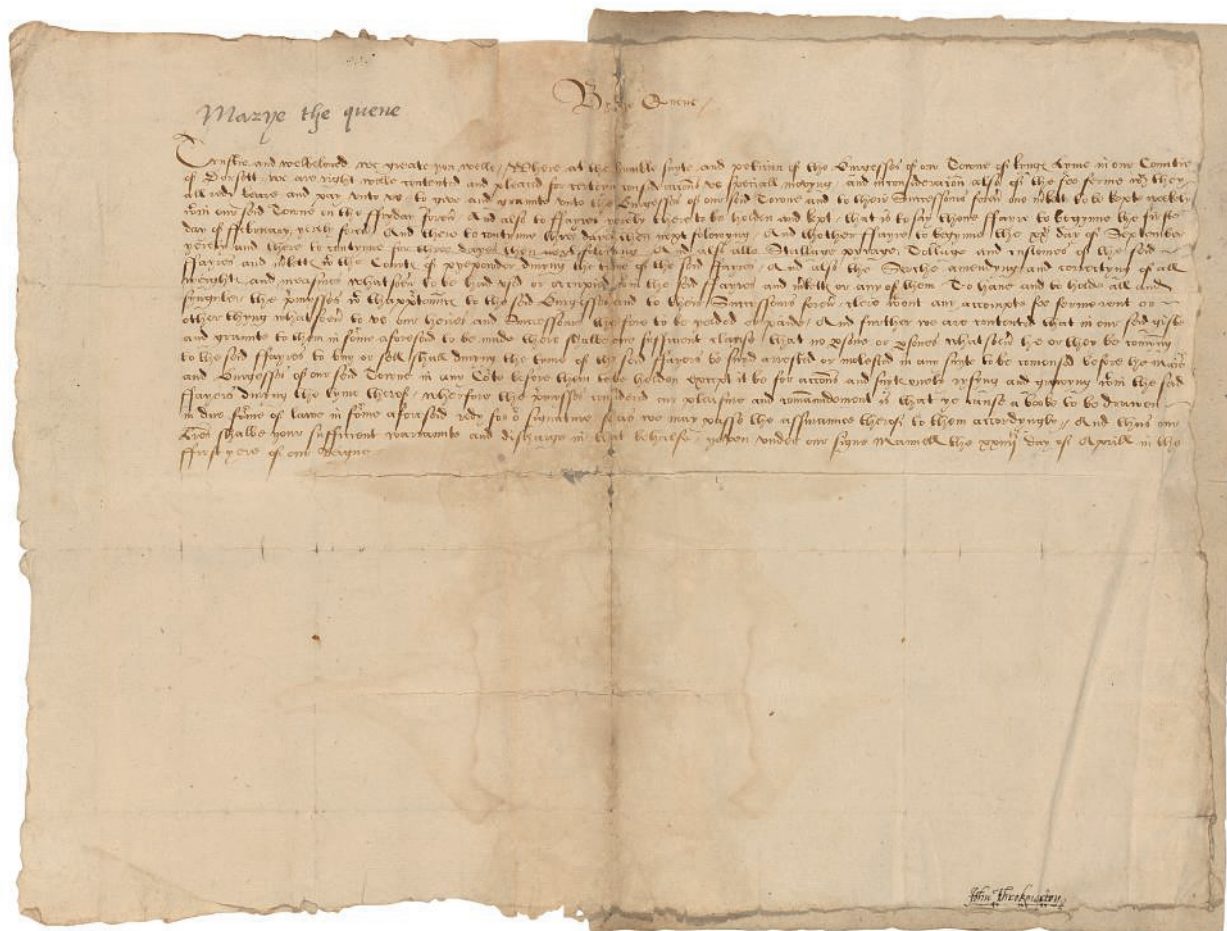 Marye the quene
By the Quene /
Trustie and welbeloved we greate you welle / Where at the humble suyte and peticion of the Burgesses of our Towne of kynge Lyme in our Countie
of Dorsett we are right welle contented and pleased for certen consideracions us speciall movyng and in consideracion also of the fee ferme wch they
all redy beare and pay unto us to gyve and graunte unto the Burgesses of our said Towne and to their Successours forevr one mrkett to be kept wekely
wtin our said Towne in the ffryday forevr And also to ffayres yerely there to be holden and kept that is to say thone ffayre to begynne the firste
day of ffebruary yerely forevr And there to contynue three dayes then next folowyng And thother ffayre to begynne the xxth day of September
yerely and there to contynue for three dayes then next folowing And also alle Stallage pycage Tollage and customes of the said
ffayres and mrketts wt the Courte of pypowder duryng the tyme of the said ffayres And also the Serche amendyng and correctyng of all
weights and measures whatsoevr to be had usd or occupied wtin the said ffayres and mrketts or any of them To have and to holde all and
synguler the pmysses wt thapprtennces to the said Burgesses and to their Successours forevr clere wtout any accompte fee ferme rent or
other thyng whatsoevr to us our heires and Successours therfore to be yelded or paide And further we are contented that in our said gifte
and graunte to them in forme aforesaid to be made there shalbe one sufficient clause that no psone or psones whatsoevr he or they be comyng
to the said ffayres to buy or sell shall duryng the tyme of the said ffayers be suyd arrested or molested in any suyte to be comensed before the maior
and Burgesses of our said Towne in any Corte before them to be holden except it be for accions and suyts only rysing and growyng wtin the said
ffayers duryng the tyme therof wherfore the pmysses considred our pleasure and comaundement is that ye cause a booke to be drawen
in due forme of lawe in forme aforesaid redy for or signature so as we may passe the assurance therof to them accordyngly / And thies our
lres shalbe your sufficient warraunte and discharge in that behalfe yeven under our signe Manuell the xxiiijth day of Aprill in the
ffirst yere of our Reigne
John Throkmarton